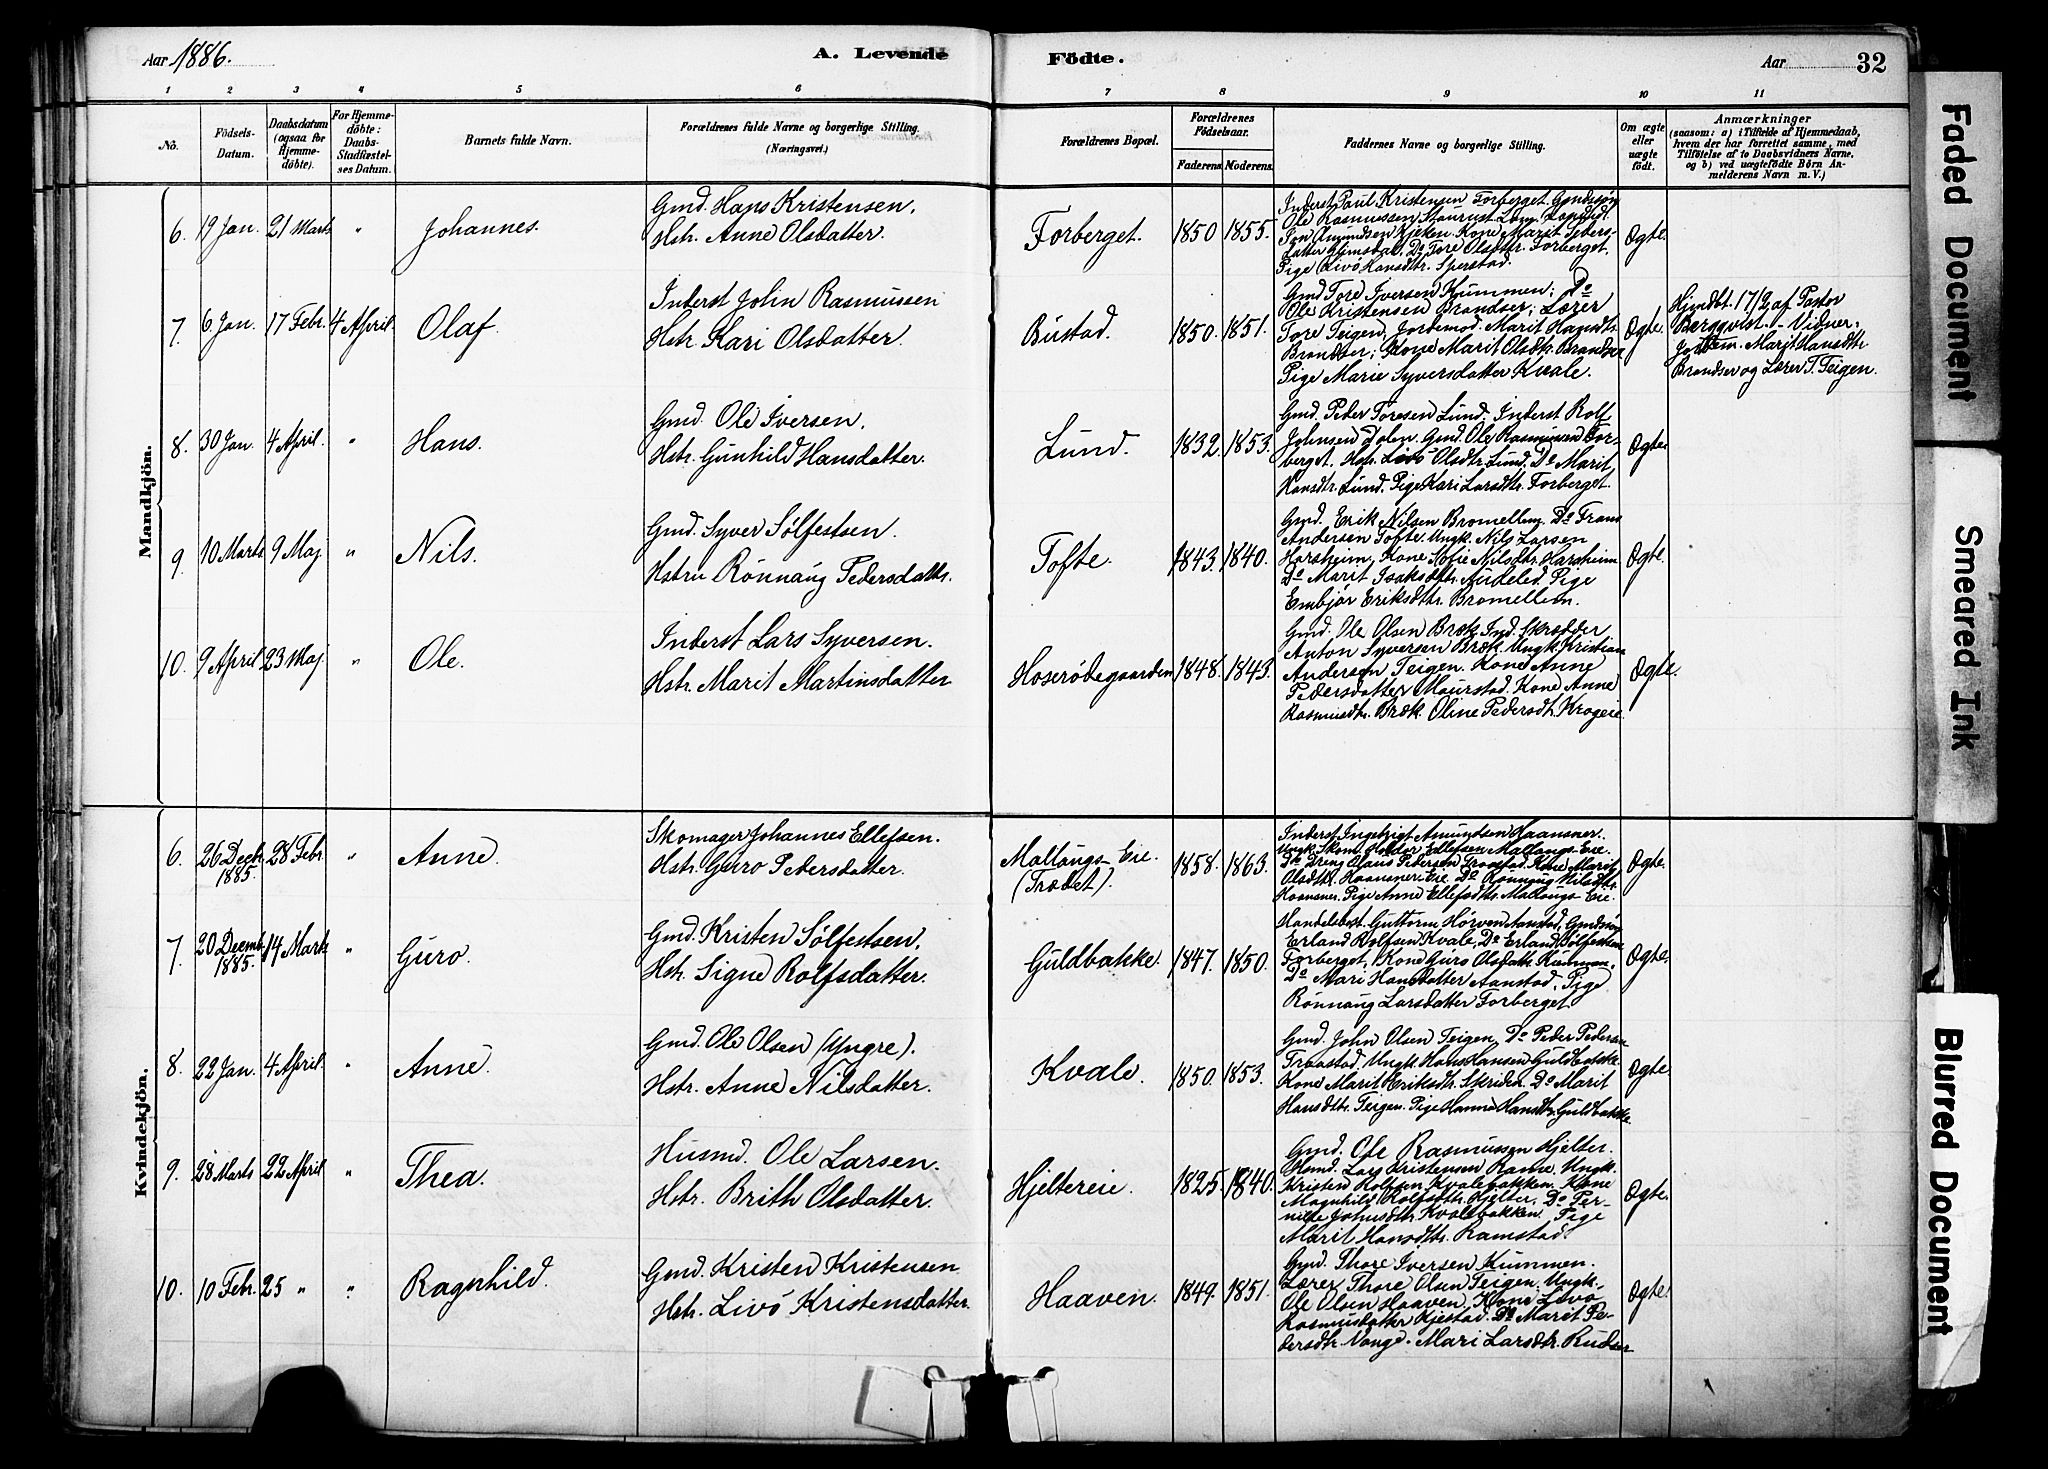 Aar 1886.
A. Levende Födte.
Aar
32
1 2 3 4 5 6 7 8 9 10 11
No.
Födsels-Datum.
Daabsdatum (ogsaa for Hjemmedöbte).
For Hjemmedöbte: Daabs-Stadfæstelses Datum.
Barnets fulde Navn.
Forældrenes fulde Navne og borgerlige Stilling.
(Næringsvei.)
Forældrenes Bopæl.
Forældrenes Födselsaar.
Faderens. Moderens.
Faddernes Navne og borgerlige Stilling.
Om ægte eller uægte födt.
Anmærkninger
(saasom: a) i Tilfælde af Hjemmedaab,
hvem der har forrettet samme, med
Tilföielse af to Daabsvidners Navne,
og b) ved uægtefödte Börn Anmelderens Navn m. V.)
Mandkjön.
6. 19 Jan. 21 Marts " Johannes.
Gmd. Hans Kristensen.
Hstr. Anne Olsdatter.
Forberget. 1850 1855.
Inderst Paul Kristensen Forberget. Gmdssøn
Ole Rasmussen Staurust Lom.
Jon Amundsen Kjeken. Kone Marit Peders-
datter Do Tore Olsdtr. Forberget.
Pige Livö Hansdtr. Sperstad.
Ægte.
7. 6 Jan. 17 Febr. 4 April. Olaf.
Inderst John Rasmussen
Hstr. Kari Olsdatter.
Bustad. 1850. 1851.
Gmd Tore Iversen Kummen; Do
Ole Kristensen Brandser; Lærer
Tore Teigen; Jordemod. Marit Hansdtr.
Brandser; Kone Marit Olsdtr. Brandser
Pige Marie Syversdatter Kvale.
Ægte.
Hjmdbt. 17/2 af Pastor
Bergqvist. - Vidner:
Jordem. Marit Hansdtr
Brandser og Lærer T. Teigen.
8. 30 Jan. 4 April. " Hans.
Gmd. Ole Iversen.
Hstr. Gunhild Hansdatter.
Lund. 1832. 1853.
Gmd. Peder Toresen Lund. Inderst Rolf
Johnsen Dalen. Gmd. Ole Rasmussen For-
berget. Hstr. Livö Olsdtr. Lund. Do Marit
Hansdtr. Lund. Pige Kari Larsdtr. Forberget.
Ægte
9. 10 Marts 9 Maj " Nils.
Gmd. Syver Sølfestsen.
Hstru Rönnaug Pedersdattr.
Tofte. 1843. 1840.
Gmd. Erik Nilsen Do Frans
Andersen Tofte. Ungk. Nils Larsen
Harsheim, Kone Sofie Nilsdtr. Harsheim
Do Marit Isaksdtr. Pige
Embjør Eriksdtr.
Ægte.
10. 9 April 23 Maj " Ole.
Inderst Lars Syversen.
Hstr. Marit Martinsdatter
Hoserødegaarden 1848. 1843.
Gmd. Ole Olsen Bræk, Ind. Skrædder
Anton Syversen Bræk. Ungk. Kristian
Andersen Teigen. Kone Anne
Pedersdatter Maurstad. Kone Anne
Rasmusdtr. Bræk. Oline Pedersdtr.
Ægte.
Kvindekjön.
6. 26 Decbr. 1885. 28 Febr. " Anne.
Skomager Johannes Ellefsen.
Hstr. Guro Pedersdatter.
Mallangs Eie. (Trædet). 1858. 1863.
Inderst Ingebrigt Amundsen Haansner.
Ungk. Skom. Halvor Ellefsen Mallangs Eie.
Do Dreng Olaus Pedersen Traastad. Kone Marit
Olsdtr. Haansner Eie. Do Rönnaug Nilsdtr.
Haansner. Pige Anne Ellefsdtr. Mallangs Eie.
Ægte.
7. 20 Decemb. 1885. 14 Marts " Guro.
Gmd. Kristen Sölfestsen.
Hstr. Signe Rolfsdatter.
Guldbakke. 1847. 1850.
Handelsbest. Guttorm Hörven Aanstad. Gmdssøn
Erland Rolfsen Kvale, Do Erland Sölfestsen
Forberget, Kone Guro Olsdatter Kummen.
Do Mari Hansdatter Aanstad. Pige
Rönnaug Larsdatter Forberget.
Ægte.
8. 22 Jan. 4 April. " Anne.
Gmd. Ole Olsen (Yngre).
Hstr. Anne Nilsdatter.
Kvale. 1850. 1853.
Gmd. John Olsen Teigen, Do Peder Pedersen
Traastad. Ungk. Hans Hansen Guldbakke.
Kone Marit Eriksdtr. Skriden. Do Marit
Hansdtr. Teigen. Pige Hanna Hansdtr. Guldbakke.
Ægte.
9. 28 Marts 22 April " Thea.
Husmd. Ole Larsen.
Hstr. Brith Olsdatter.
Hjeltereie. 1825. 1840.
Gmd. Ole Rasmussen Hjelter.
Husmd. Lars Kristensen Ramne. Ungk.
Kristen Rolfsen Kvalebakken. Kone
Magnhild Rolfsdtr. Hjelter. Do Per-
nille Johnsdtr. Kvalebakken. Pige
Marit Hansdtr. Ramstad.
Ægte.
10. 10 Febr. 25 " " Ragnhild.
Gmd. Kristen Kristensen
Hstr. Livö Kristensdatter.
Haaven. 1849. 1851.
Gmd. Thore Iversen Kummen.
Lærer Thore Olsen Teigen. Ungk.
Ole Olsen Haaven, Kone Livö
Rasmusdatter Kjestad. Do Marit Pe-
dersdtr. Vange. Mari Larsdtr. Rudser
Ægte.
Faded Document
Smeared Ink
Blurred Document